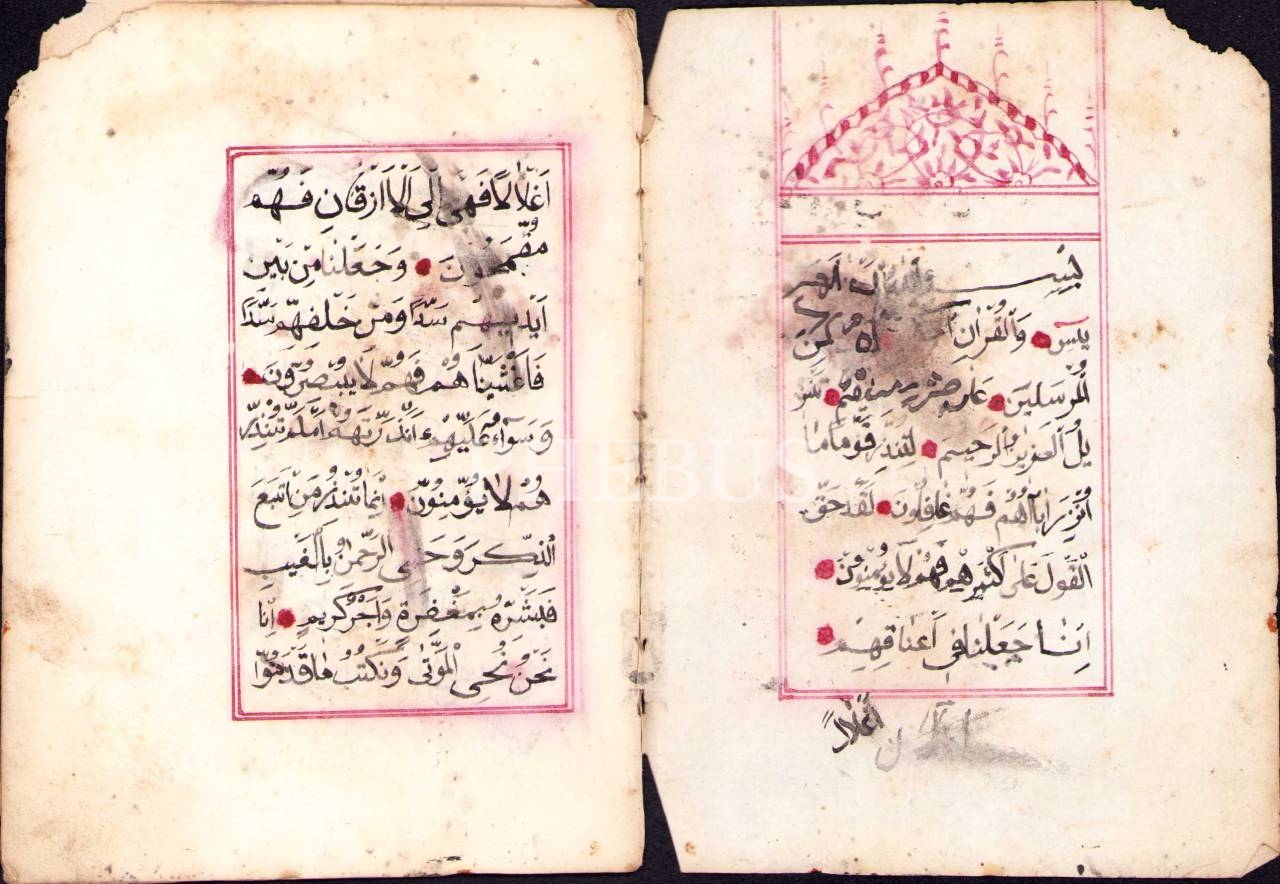 بِسْــــــ
يٰسٓ وَالْقُرْاٰنِ لَمِنَ
الْمُرْسَلِينَ عَلٰى تَنْزِ
يلَ الْعَزِيزِ الرَّحِيمِ لِتُنْذِرَ قَوْمًا مَا
اُنْذِرَ اٰبَاۤؤُهُمْ فَهُمْ غَافِلُونَ لَقَدْ حَقَّ
الْقَوْلُ عَلٰى اَكْثَرِهِمْ فَهُمْ لَا يُؤْمِنُونَ
اِنَّا جَعَلْنَا فِى اَعْنَاقِهِمْ
اَغْلَالًا
اَغْلَالًا فَهِىَ اِلَى الْاَذْقَانِ فَهُمْ
مُقْمَحُونَ وَجَعَلْنَا مِنْ بَيْنِ
اَيْدِيهِمْ سَدًّا وَمِنْ خَلْفِهِمْ سَدًّا
فَاَغْشَيْنَاهُمْ فَهُمْ لَا يُبْصِرُونَ
وَسَوَاۤءٌ عَلَيْهِمْ ءَاَنْذَرْتَهُمْ اَمْ لَمْ تُنْذِرْ
هُمْ لَا يُؤْمِنُونَ اِنَّمَا تُنْذِرُ مَنِ اتَّبَعَ
الذِّكْرَ وَخَشِىَ الرَّحْمٰنَ بِالْغَيْبِ
فَبَشِّرْهُ بِمَغْفِرَةٍ وَاَجْرٍ كَرِيمٍ اِنَّا
نَحْنُ نُحْىِ الْمَوْتٰى وَنَكْتُبُ مَا قَدَّمُوا
PHEBUS